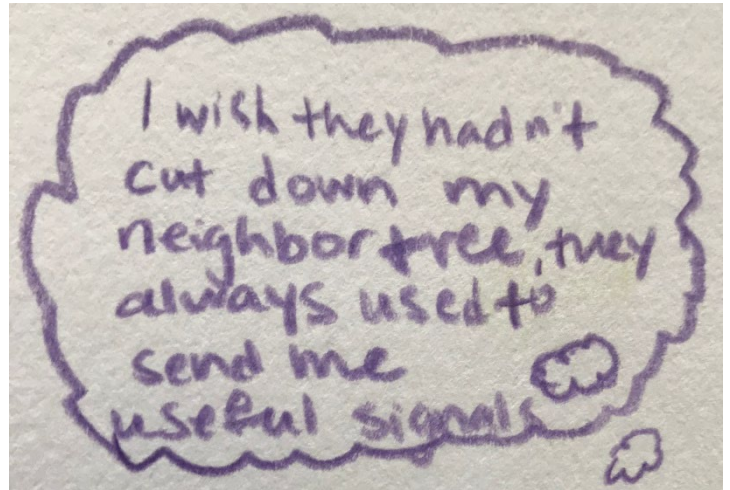 I wish they hadn't
cut down my
neighbor tree, they
always used to
send me
useful signals